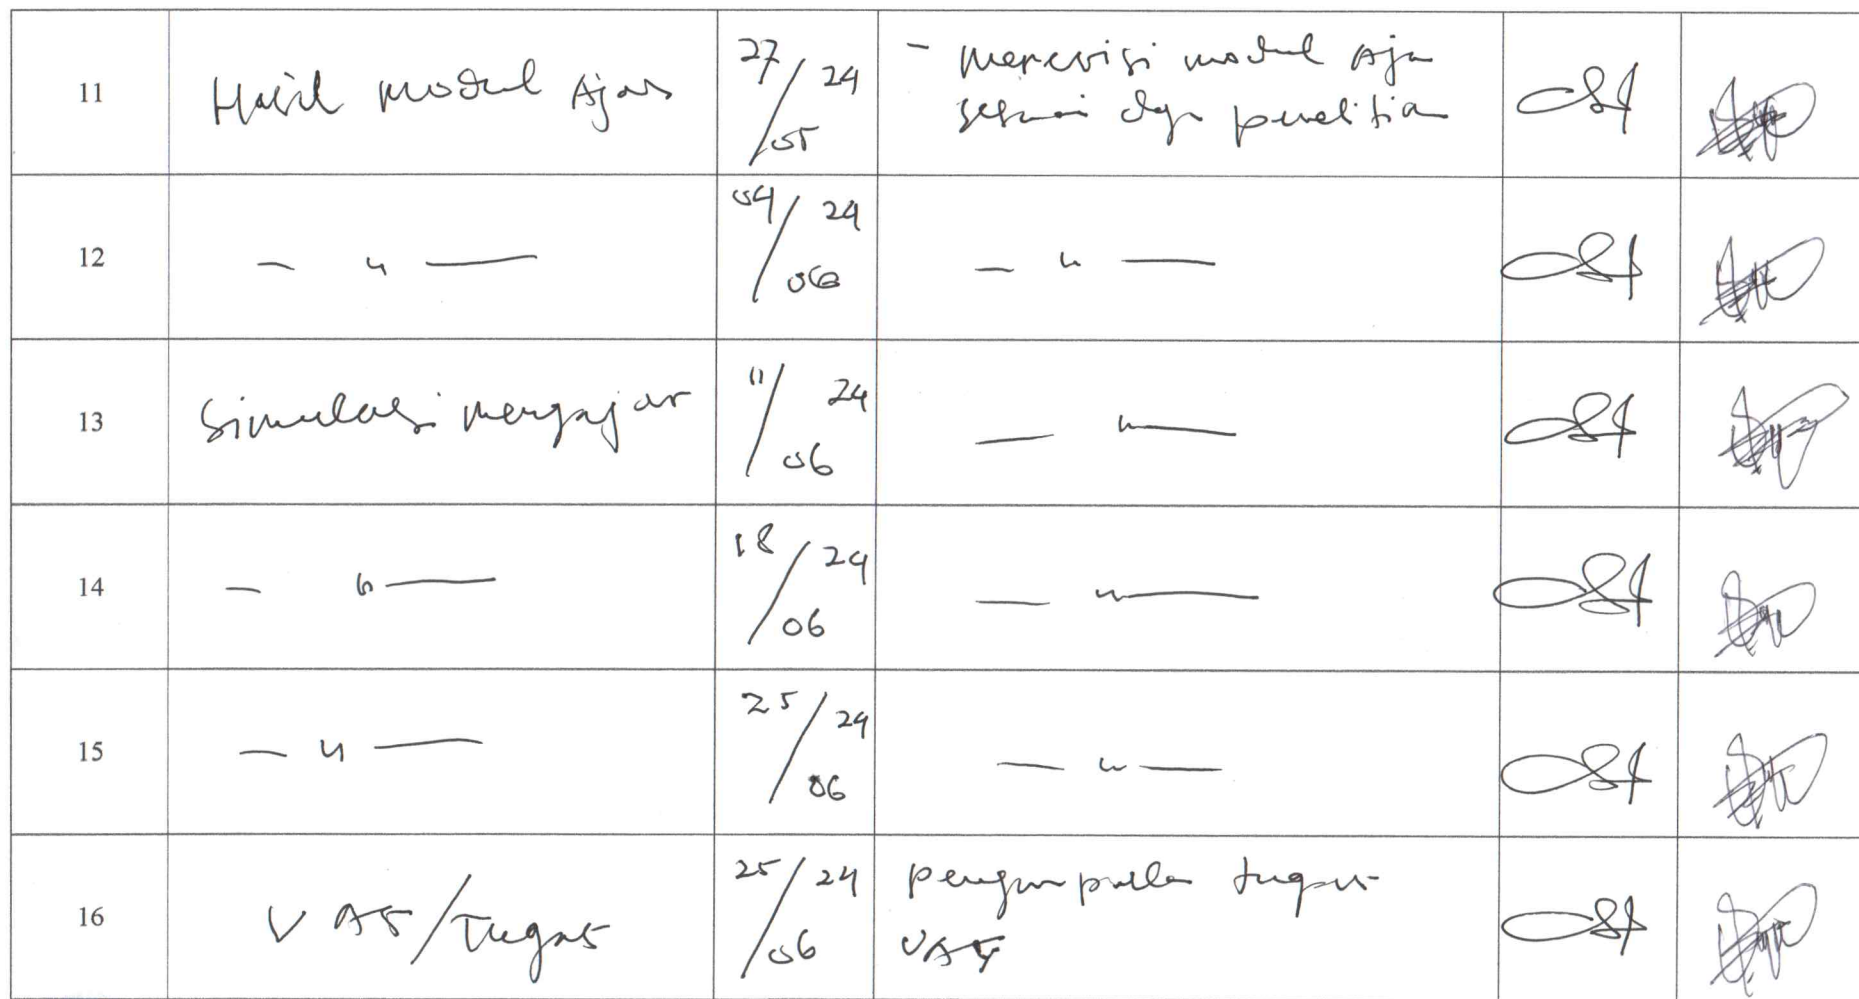 11
Hasil modul Ajar
27/05 24
- Merevisi modul Ajar
sesuai dgn penelitian
12
— 〃 —
04/06 24
— 〃 —
13
Simulasi mengajar
11/06 24
— 〃 —
14
— 〃 —
18/06 24
— 〃 —
15
— 〃 —
25/06 24
— 〃 —
16
UAS/Tugas
25/06 24
Pengumpulan tugas
UAS